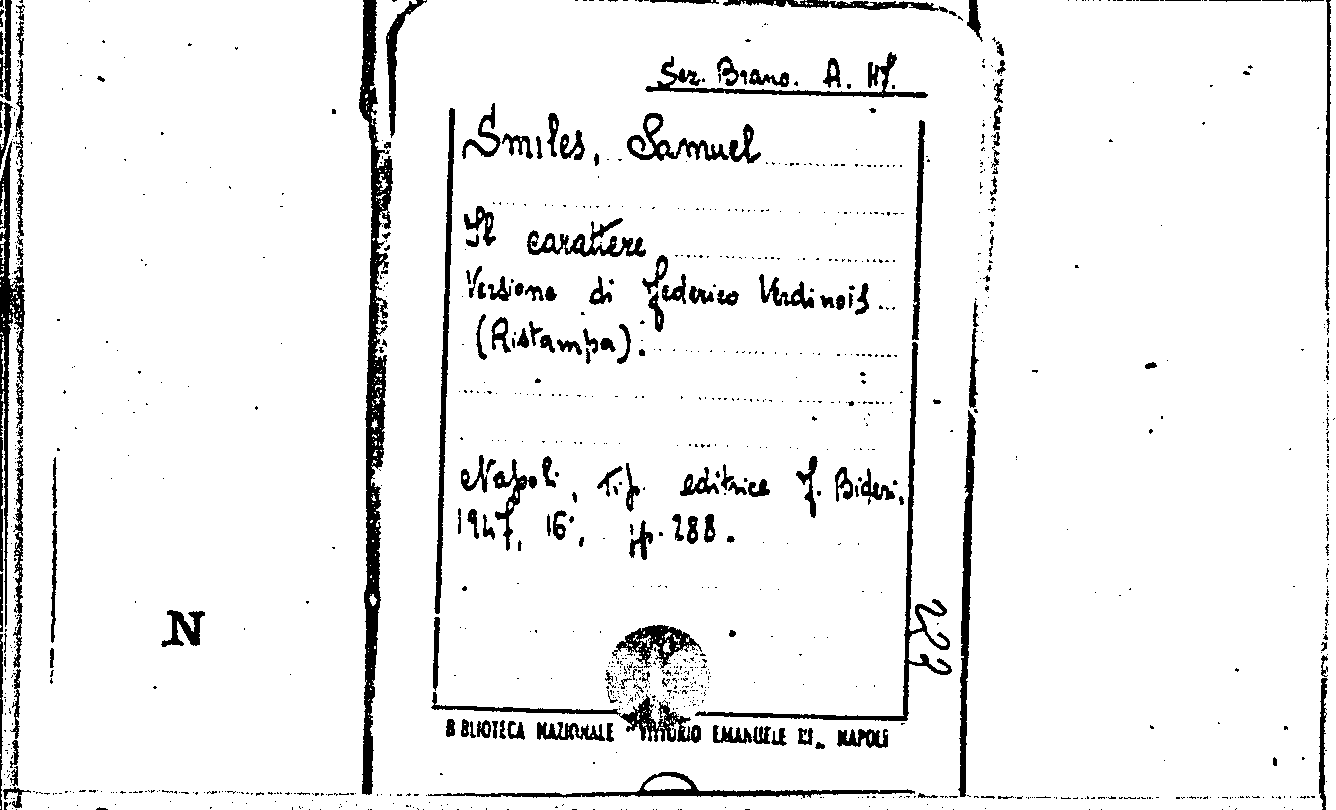 Sez. Branc. A. 47.
Smiles, Samuel
Il carattere
Versione di Federico Verdinois
(Ristampa).
Napoli, Tip. editrice F. Bideri,
1947, 16°, pp. 288.
N
BIBLIOTECA NAZIONALE VITTORIO EMANUELE III, NAPOLI